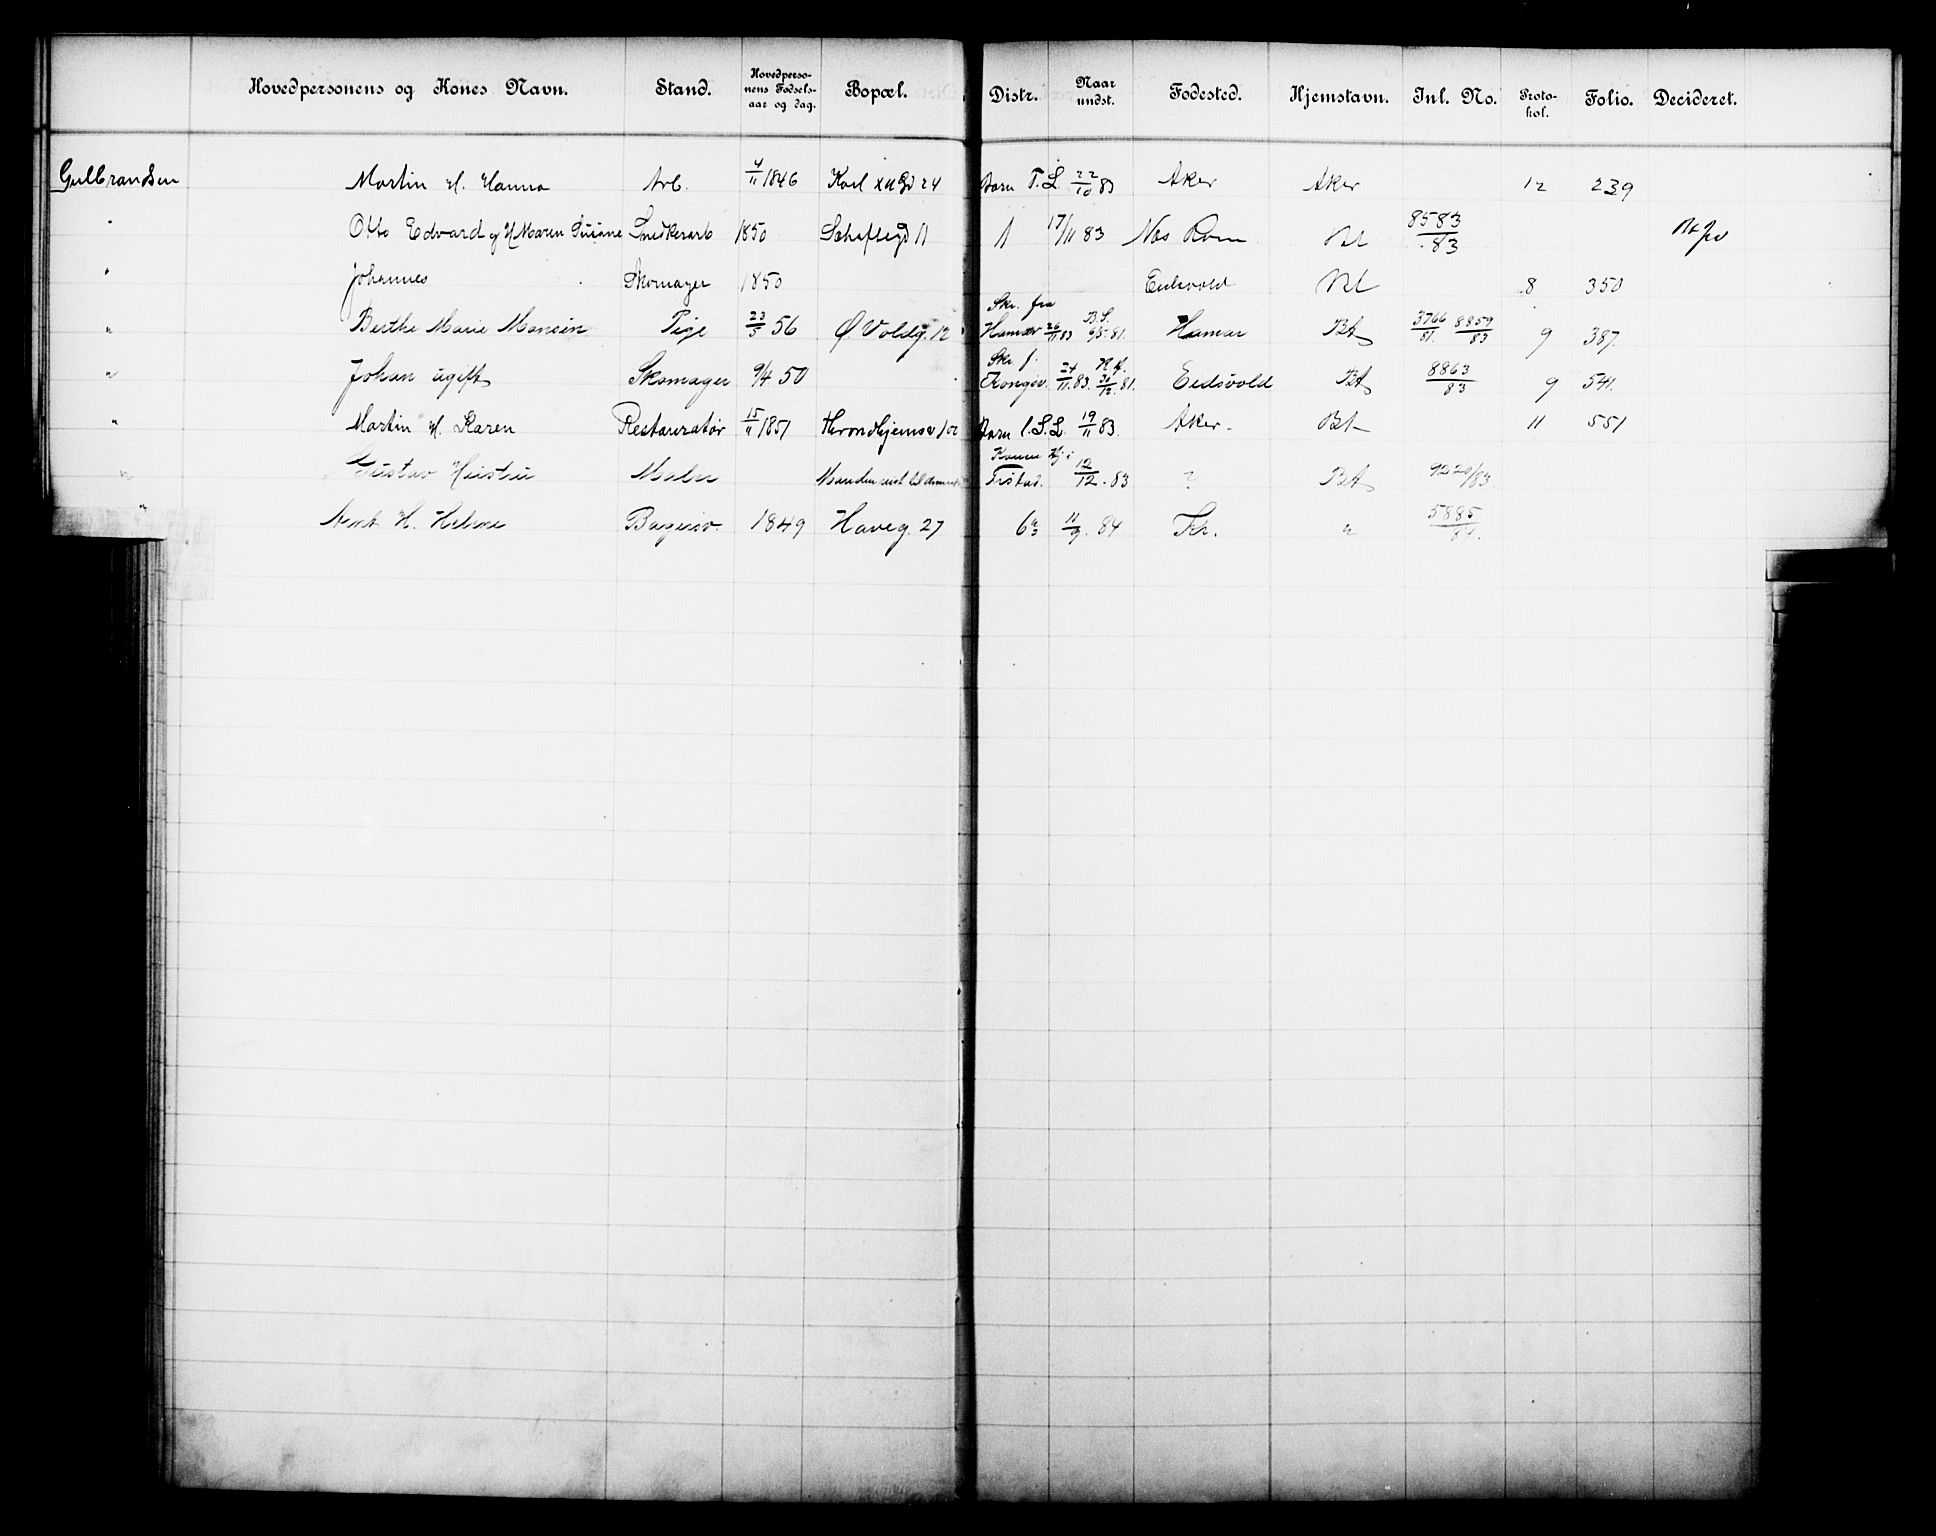 Hovedpersonens og Kones Navn. Stand. Hovedpersonens Fødselsaar og dag. Bopæl. Distr. Naar undst. Fødested. Hjemstavn. Inl. No. Protokol. Folio. Decideret.
Gulbrandsen Martin H. Hanna Arb. 4/11 1846 Karl XII Gd 24 Barn T. L. 22/10 83 Aker Aker 12 239
" Otto Edvard og H Maren Susane Snedkerarb 1850 11 17/11 83 Næs Rom 8583/83
" Johannes Skomager 1850 Eidsvold 8 350
Skr. fra B.S.
" Berthe Marie Monsen Pige 23/5 56 Ø. Voldg. 12 Hamar 26/11 83 9/5. 81. Hamar Bt 3766/81. 8859/83 9 387.
Skr. f.
" Johan ugift Skomager 9/4 50 Kongsv. 24/11. 83. 31/12. 81. Eidsvold Bt 8863/83 9 541.
" Martin H. Karen Restauratør 15/11 1851 Throndhjemsv 100 Barn S. L. 19/11 83. Aker. Bt 11 551
Konen Hj. i
" Gustav Hustru Maler Manden reist til Tistad. 12/12. 83 ? Bt 9220/83.
" H. Helene 1849 Haveg. 27 6 11/9. 84 Kr. " 5885/84.